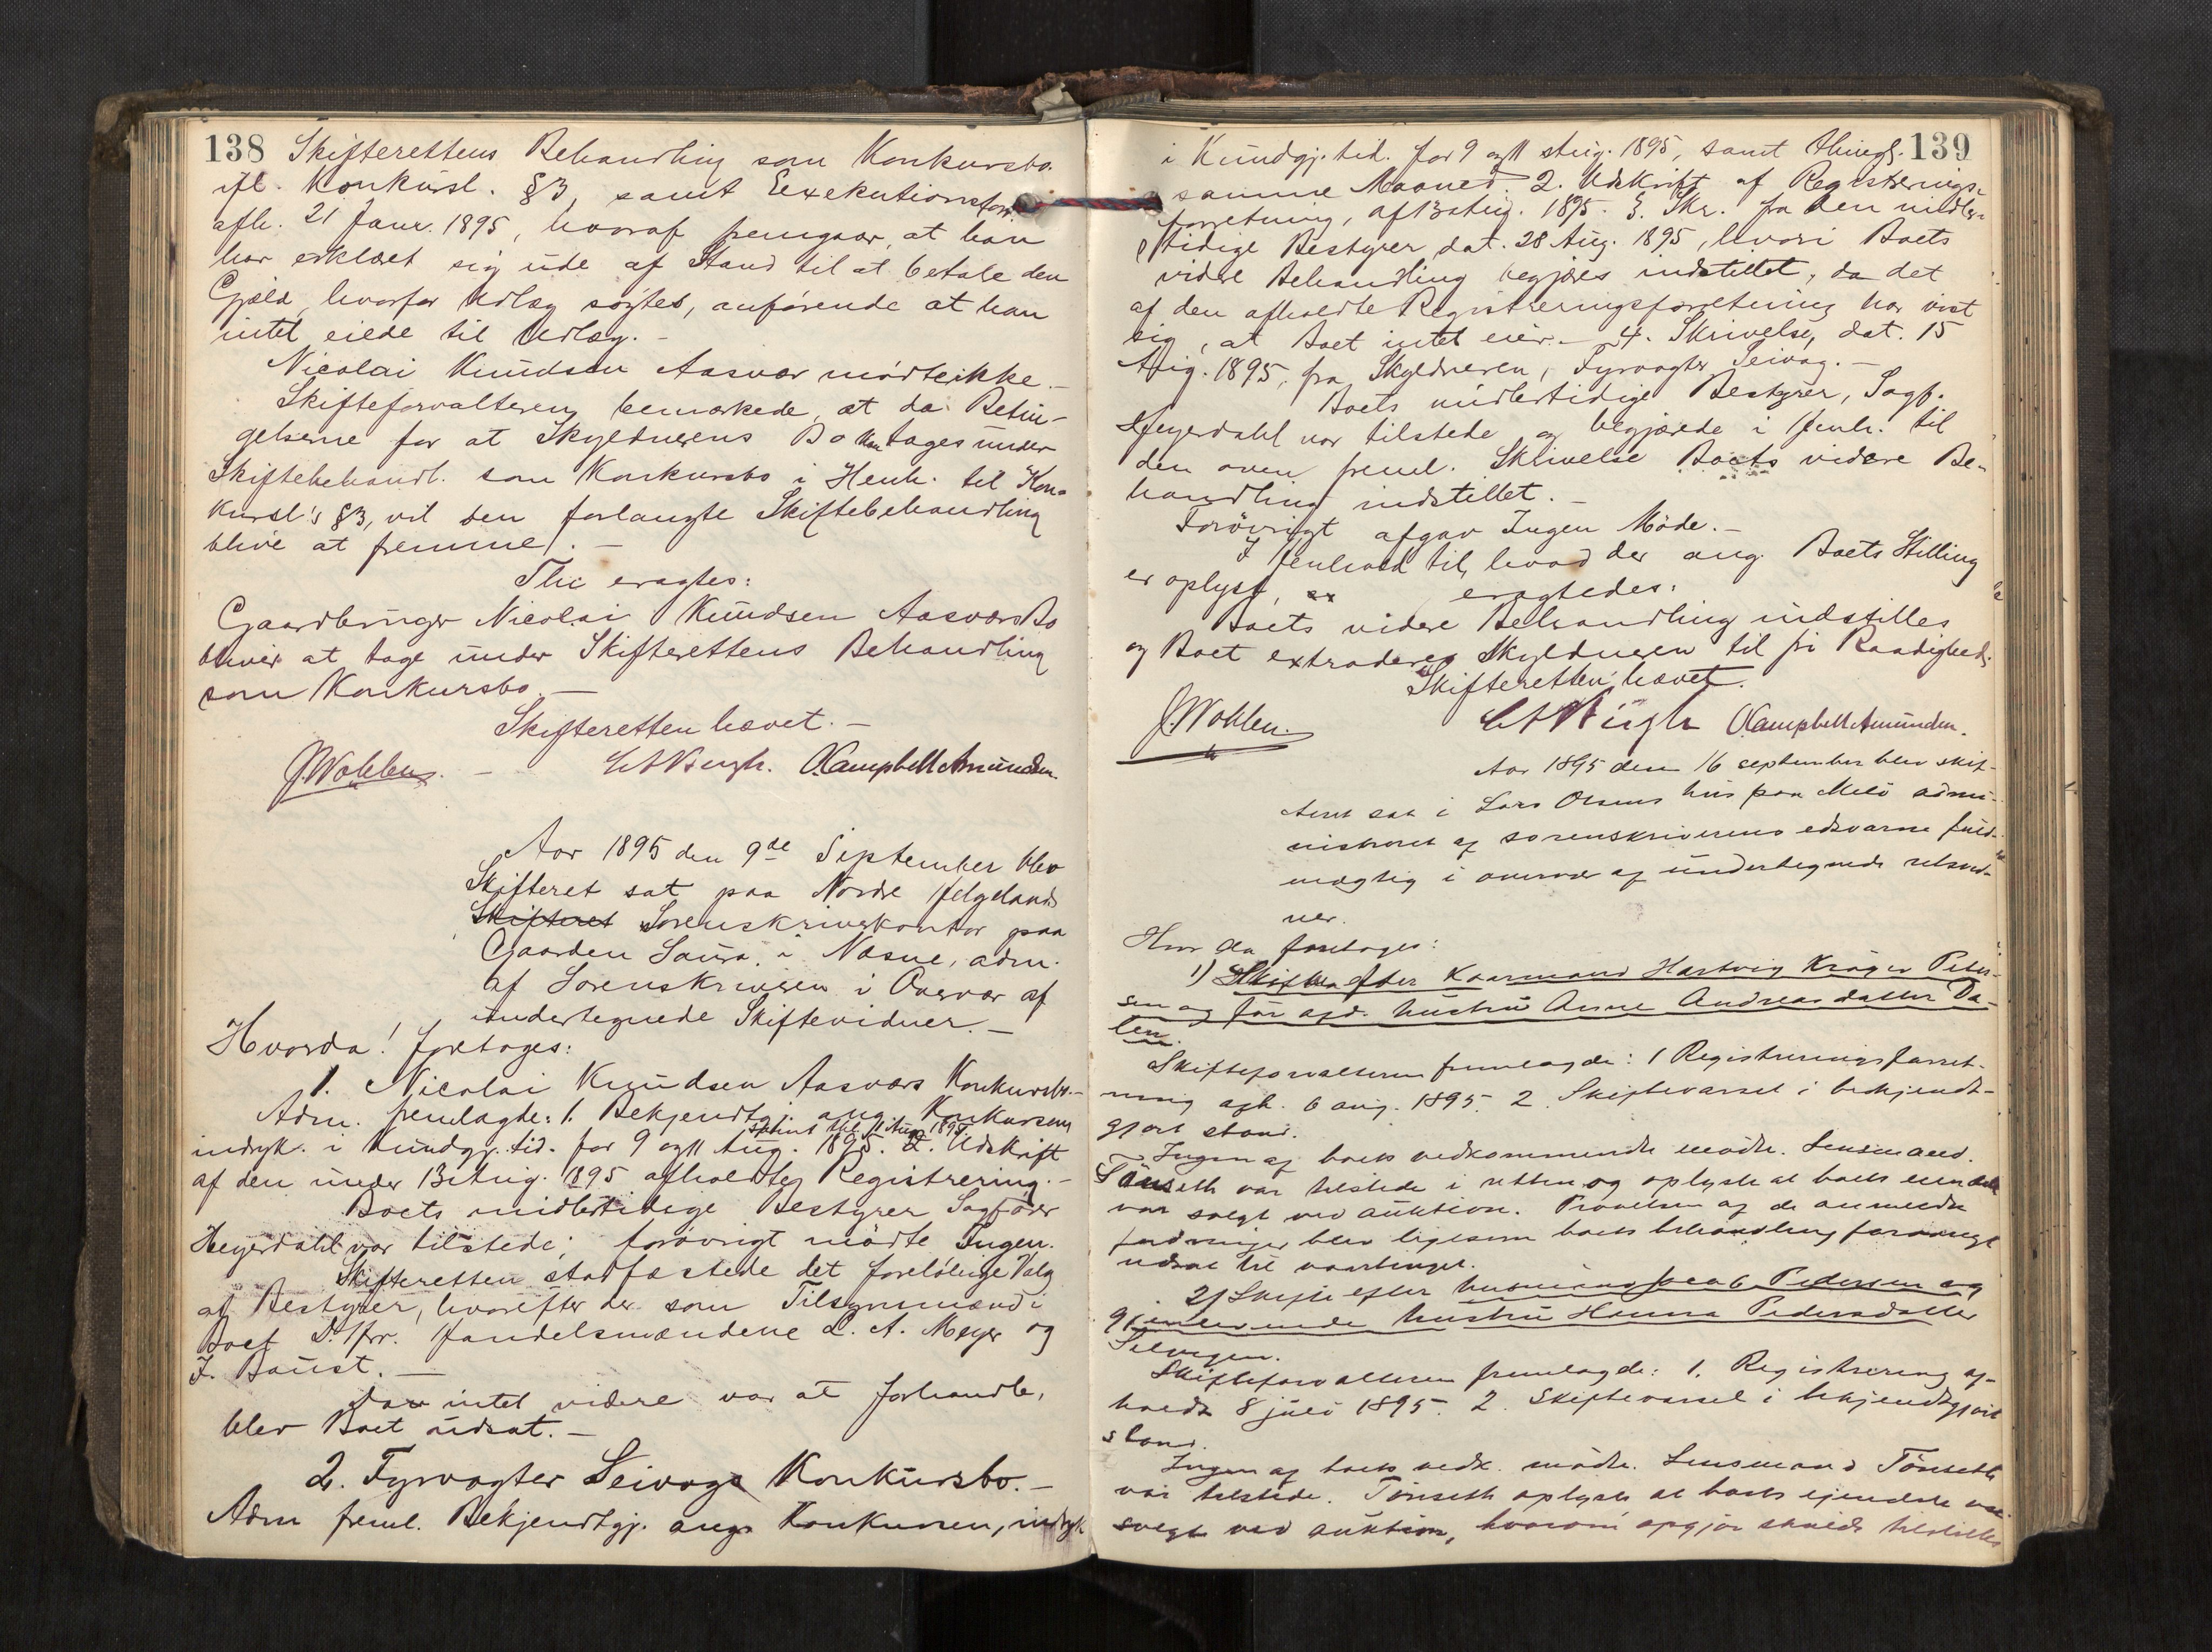 138
Skifterettens Behandling som Konkursbo.
ifl. Konkursl. §3, samt Exekutionsforr.
afh. 21 Janr. 1895, hvoraf fremgaar, at han
har erklæret sig ude af Stand til at betale den
Gjæld, hvorfor Udlæg søgtes, anførende at han
intet eiede til Udlæg. -
Nicolai Knudsen Aasvær mødte ikke. -
Skifteforvalteren bemærkede, at da Betin-
gelserne for at Skyldnerens Bo kan tages under
Skiftebehandl. som Konkursbo i Henh. til Kon-
kursl's §3, vil den forlangte Skiftebehandling
blive at fremme. -
Thi eragtes:
Gaardbruger Nicolai Knudsen Aasværs Bo
bliver at tage under Skifterettens Behandling
som Konkursbo. -
Skifteretten hævet. -
CAKrigh. OCampbellAmundsen.
Aar 1895 den 9de September blev
Skifteret sat paa Nordre Helgelands
Skifteret Sorenskriverkontor paa
Gaarden Saura i Næsne, adm.
af Sorenskriveren i Overvær af
undertegnede Skiftevidner. -
Hvorda! foretoges:
1. Nicolai Knudsen Aasværs Konkursbo. -
Adm. fremlagte: 1. Bekjendtgj. ang. Konkursen
samt thl. 11 Aug 1895
indryk. i Kundgj. tid. for 9 og 11 Aug. 1895. 2. Udskrift
af den under 13 Aug. 1895 afholdte Registrering. -
Boets midlertidige Bestyrer Sagfører
Heyerdahl var tilstede; forøvrigt mødte Ingen.
Skifteretten stadfæstede det foreløbige Valg
af Bestyrer, hvorefter der som Tilsynsmænd i
Boet Hrr. Handelsmændene L. A. Meyer og
J. Baust. -
Da intet videre var at forhandle,
blev Boet udsat. -
2. Fyrvogter Seivogs Konkursbo. -
Adm freml. Bekjendtgj. ang. Konkursen, indryk
139
i Kundgj. tid. for 9 og 11 Aug. 1895, samt thingl.
samme Maaned. 2. Udskrift af Registrerings-
forretning, af 13 Aug. 1895. 3. Skr. fra den midler-
tidige Bestyrer dat. 28 Aug. 1895, hvori Boets
videre Behandling begjæres indstillet, da det
af den afholdte Registreringsforretning har vist
sig, at Boet intet eier. - 4. Skrivelse, dat. 15
Aug. 1895, fra Skyldneren, Fyrvogter Seivog. -
Boets midlertidige Bestyrer, Sagf.
Heyerdahl var tilstede og begjærede i Henh. til
den oven freml. Skrivelse Boets videre Be-
handling indstillet. -
Forøvrigt afgav Ingen Møde. -
I Henhold til, hvad der ang. Boets Stilling
er oplyst, eragtedes:
Boets videre Behandling indstilles
og Boet extraderes Skyldneren til fri Raadighed.
Skifteretten hævet.
CAKrigh OCampbellAmundsen.
Aar 1895 den 16 september blev skif-
teret sat i Lars Olsens hus paa Melø admi-
nistreret af sorenskriverens edsvorne fuld-
mægtig i overvær af undertegnede retsvid-
ner.
Hvor da foretoges:
1) Skifte efter Kaarmand Hartvig Krøger Peter-
sen og før afd. hustru Anne Andreasdatter Da-
len.
Skifteforvalteren fremlagde: 1 Registreringsforret-
ning afh. 6 aug. 1895. 2. Skiftevarsel i bekjendt-
gjort stand.
Ingen af boets vedkommende mødte. Lensmand.
Tönseth var tilstede i retten og oplyste at boets eiendele
var solgt ved auktion. Prøvelsen af de anmeldte
fordringer blev ligesom boets behandling forøvrigt
udsat til vaartinget.
2) Skifte efter husmand Peder Pedersen og
gjenlevende hustru Hanna Pedersdatter
Selvigen.
Skifteforvalteren fremlagde: 1. Registrering af-
holdt 8 juli 1895. 2. Skiftevarsel i bekjendtgjort
stand.
Ingen af boets vedk. mødte. Lensmand Tönseth
var tilstede. Tönseth oplyste at boets ejendele var
solgt ved auktion, hvorom opgjør skulde tilstilles